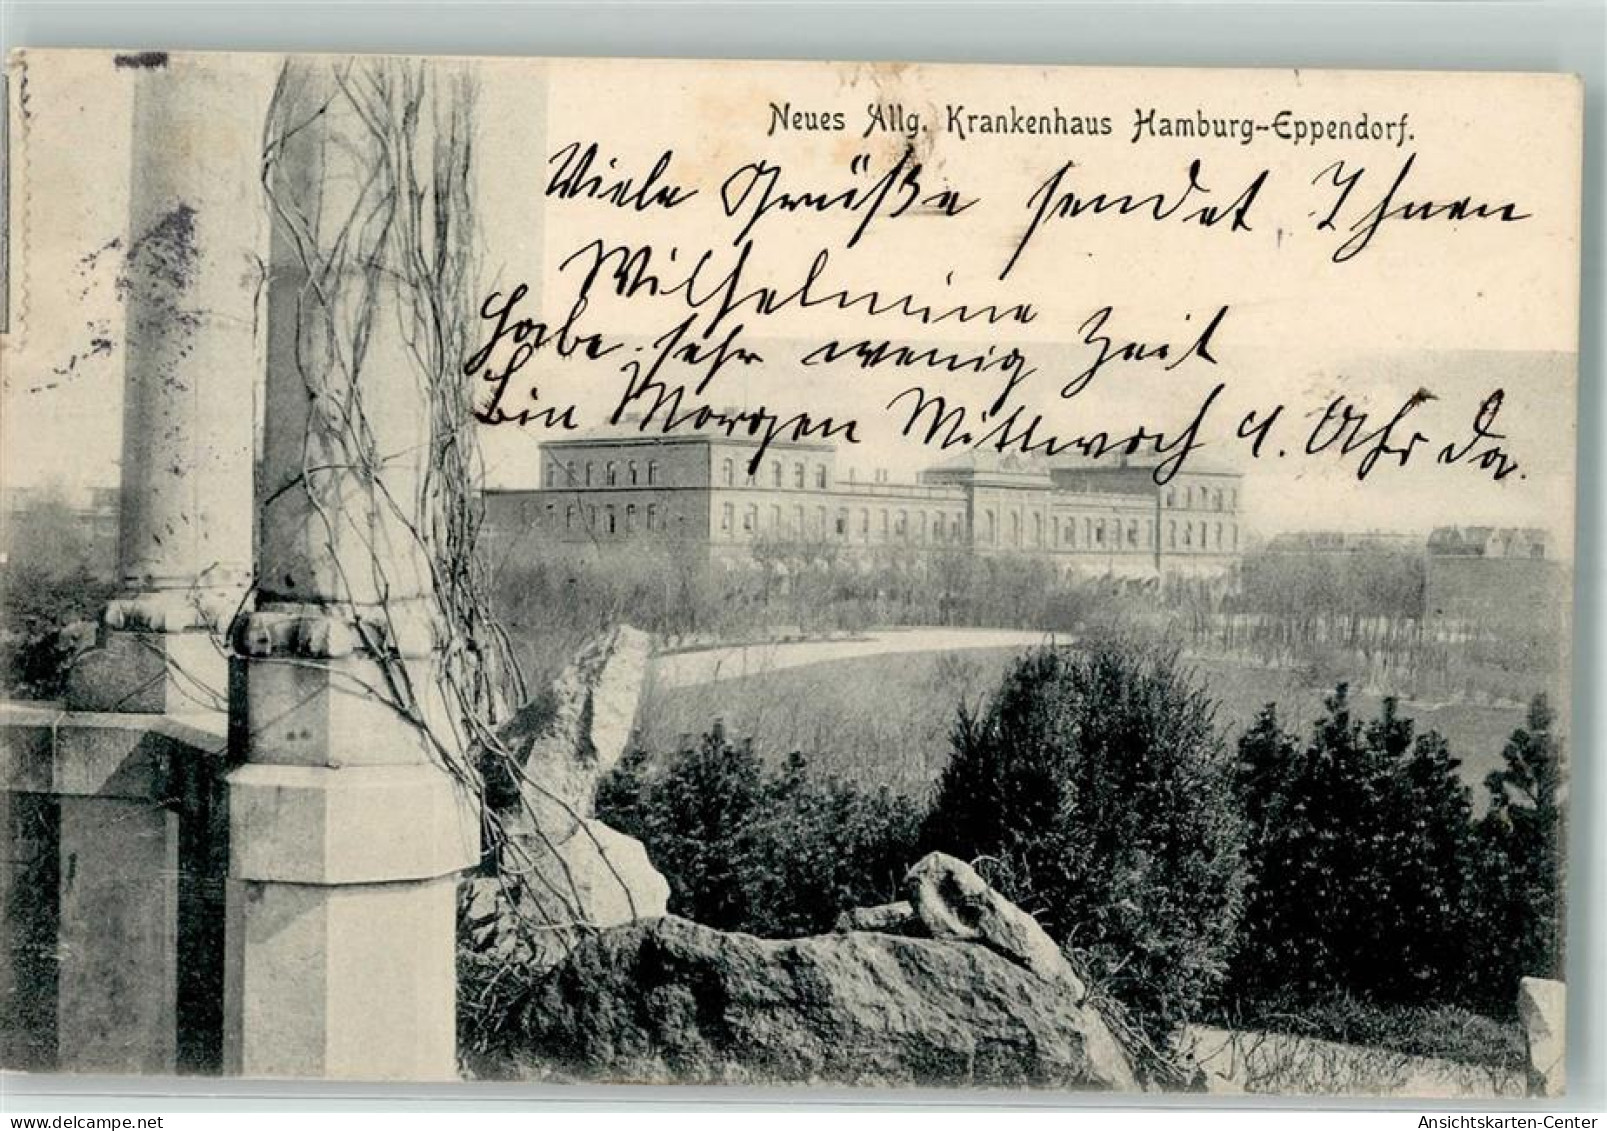 Neues Allg. Krankenhaus Hamburg-Eppendorf.
Viele Grüße sendet Ihnen
Wilhelmine
habe sehr wenig Zeit
bin Morgen Mittwoch 4. Uhr da.
Ansichtskarten-Center